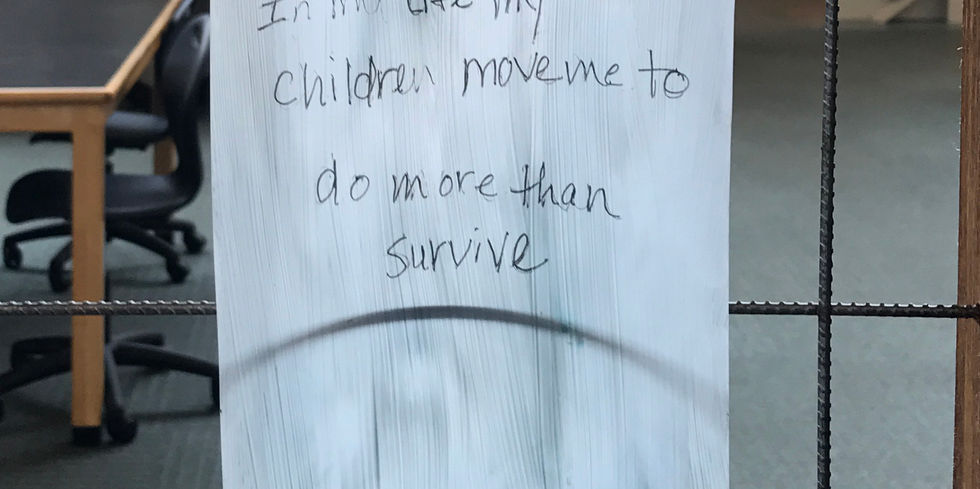 In my life my
children move me to
do more than
survive